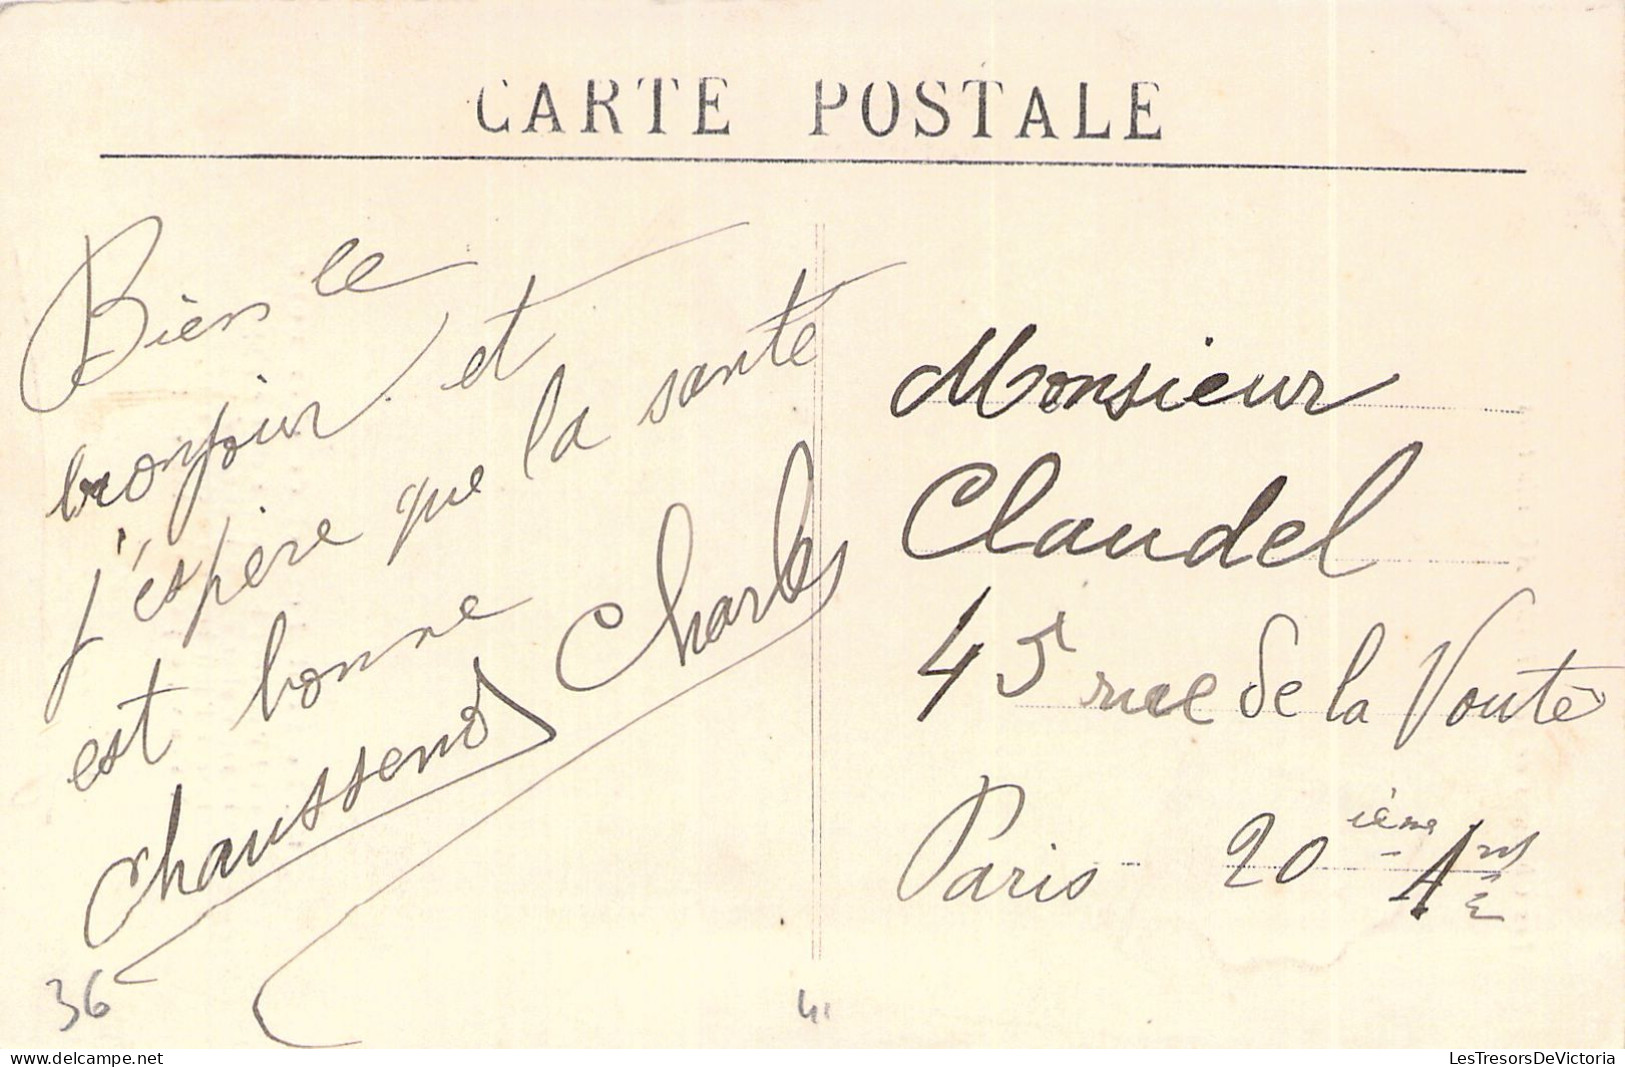 CARTE POSTALE
Bien le
bonjour et
j'éspère que la santé
est bonne
Chaussenot Charles
36
41
Monsieur
Claudel
45 rue de la Voute
Paris - 20 ième Arrt
LesTresorsDeVictoria